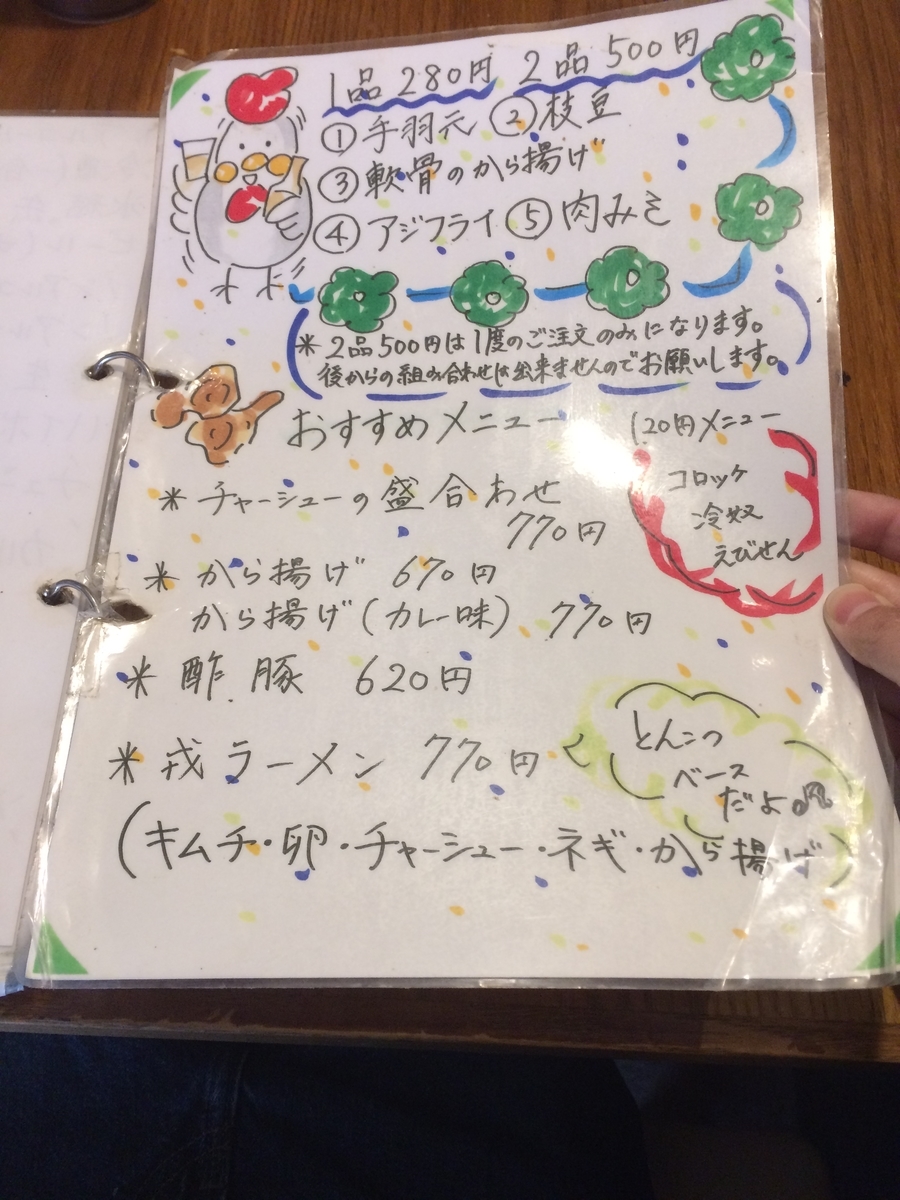 1品 280円 2品 500円
① 手羽元 ② 枝豆
③ 軟骨のから揚げ
④ アジフライ ⑤ 肉みそ
＊ 2品500円は1度のご注文のみになります。
後からの組み合わせは出来ませんのでお願いします。
おすすめメニュー
＊ チャーシューの盛合わせ
770円
＊ から揚げ 670円
から揚げ(カレー味) 770円
＊ 酢豚 620円
＊ 戎ラーメン 770円
(キムチ・卵・チャーシュー・ネギ・から揚げ)
120円メニュー
コロッケ
冷奴
えびせん
とんこつ
ベース
だよ。